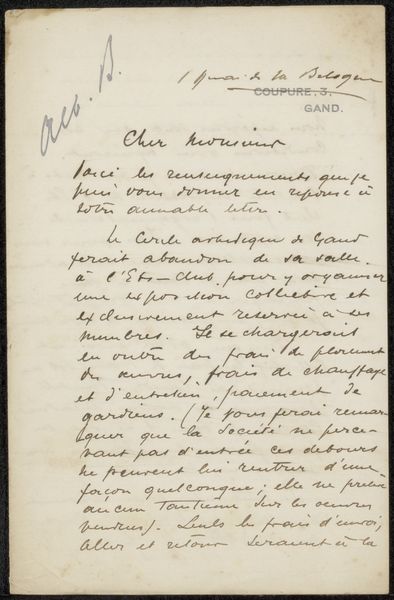 Alb. B.
1 Quai de la
COUPURE. 3.
GAND.
Cher Monsieur
Voici les renseignements que je
puis vous donner en réponse à
votre aimable lettre.
Le Cercle artistique de Gand
ferait abandon de sa salle
à l'Ets-Club pour y organiser
une exposition collective et
exclusivement réservée à ses
membres. Il se chargerait
en outre des frais de placement
des œuvres, frais de chauffage
et d'entretien, paiement de
gardiens. (Je vous ferai remar-
quer que la Société ne perce-
vant pas d'entrée ces débours
ne peuvent lui rentrer d'une
façon quelconque; elle ne prélève
aucun Tantième sur les œuvres
vendues). Seuls les frais d'envoi,
aller et retour seraient à la